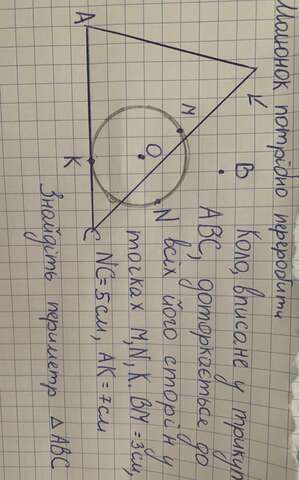 Малюнок потрібно переробити
Коло, вписане у трикут
ABC, доторкається до
всіх його сторін у
точках M,N,K. BM = 3см,
NC = 5см, AK = 7см
Знайдіть периметр △ABC
A
M
B
K
O
N
C